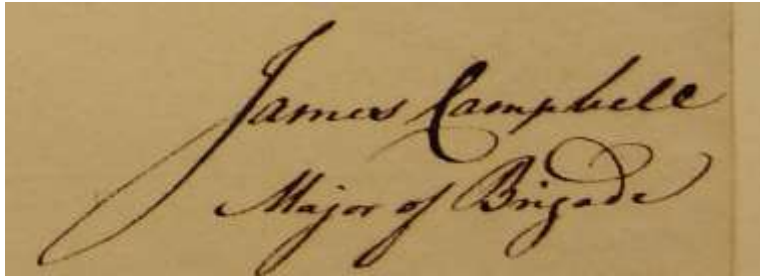 James Campbell
Major of Brigade